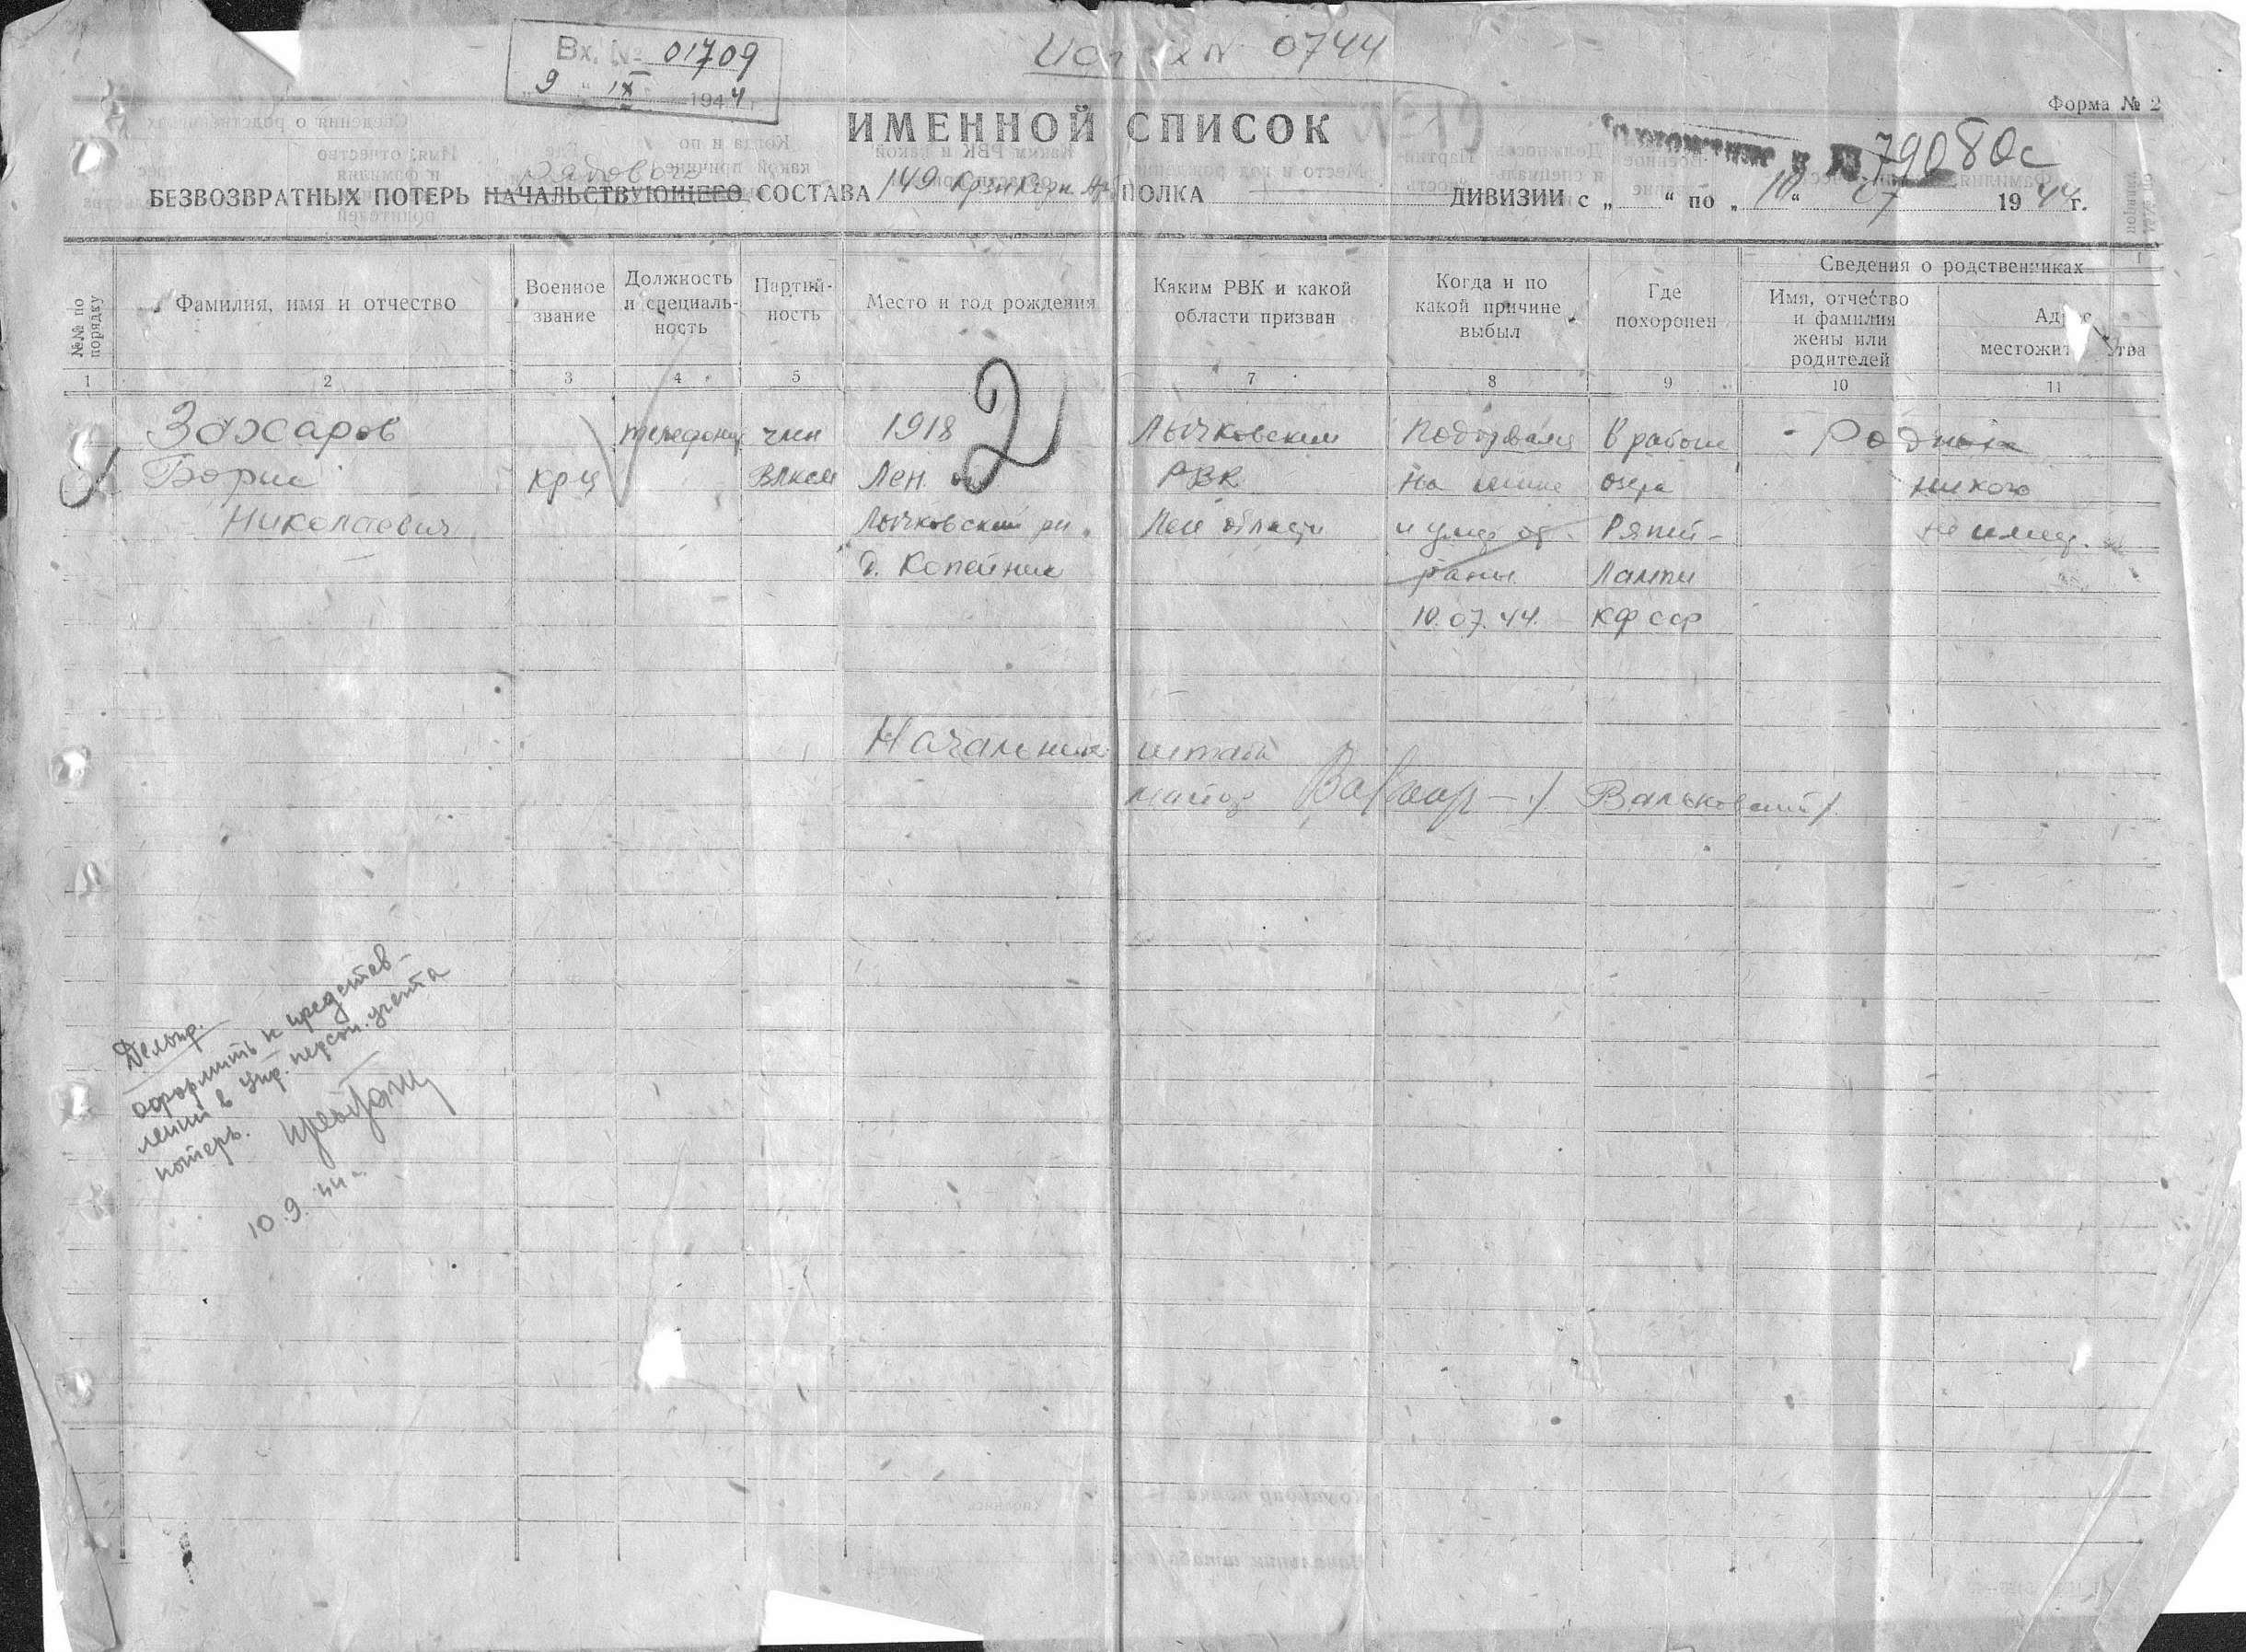 Вх. № 01709
„9 “ IX 1944 г.
0744
Форма № 2
ИМЕННОЙ СПИСОК
79080с
рядового
БЕЗВОЗВРАТНЫХ ПОТЕРЬ НАЧАЛЬСТВУЮЩЕГО СОСТАВА 149 ПОЛКА ДИВИЗИИ с „ “ по „ 10 “ 07 1944 г.
№№ по порядку
Фамилия, имя и отчество
Военное звание
Должность и специаль-ность
Партий-ность
Место и год рождения
Каким РВК и какой области призван
Когда и по какой причине выбыл
Где похоронен
Сведения о родственниках
Имя, отчество и фамилия жены или родителей
Адрес местожит тва
1 2 3 4 5 7 8 9 10 11
2
Захаров телефонист член 1918 Лычковским Подорвался В районе Родных
Борис кр-ц ВЛКСМ Лен. РВК на мине озера никого
Николаевич Лычковский рн. Лен области и умер от Ряпи- не имеет.
д. Копейник раны Лампи
10.07.44. КФССР
Начальник штаба
майор /Вальковский/
оформить к представ-
лению в Упр. персон. учета
потерь.
10.9.44 г.